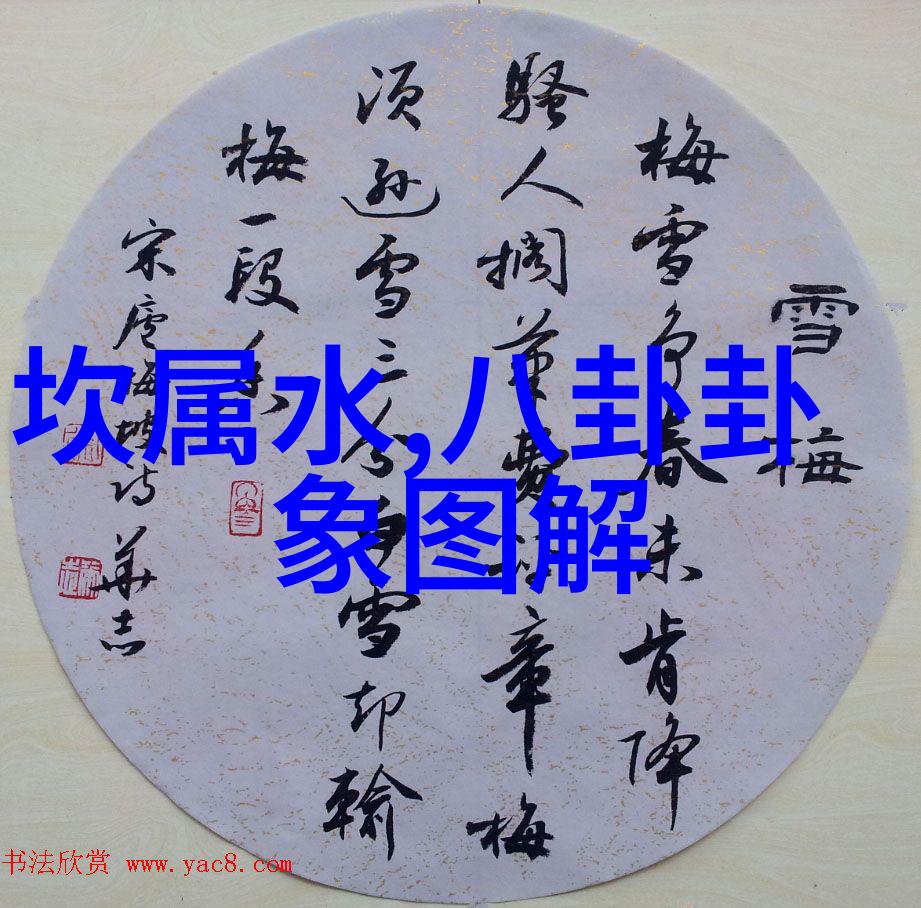 坎属水,八卦卦
象图解
雪梅
梅雪争春未肯降
骚人搁笔费评章梅
须逊雪三分白雪却输
梅一段香
宋卢梅坡诗 华志
书法欣赏 www.yac8.com